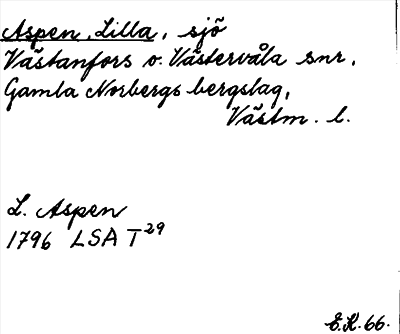 Aspen, Lilla, sjö
Västanfors o. Västervåla snr,
Gamla Norbergs bergslag,
Västm. l.
L. Aspen
1796 LSA T29
E.K. 66.